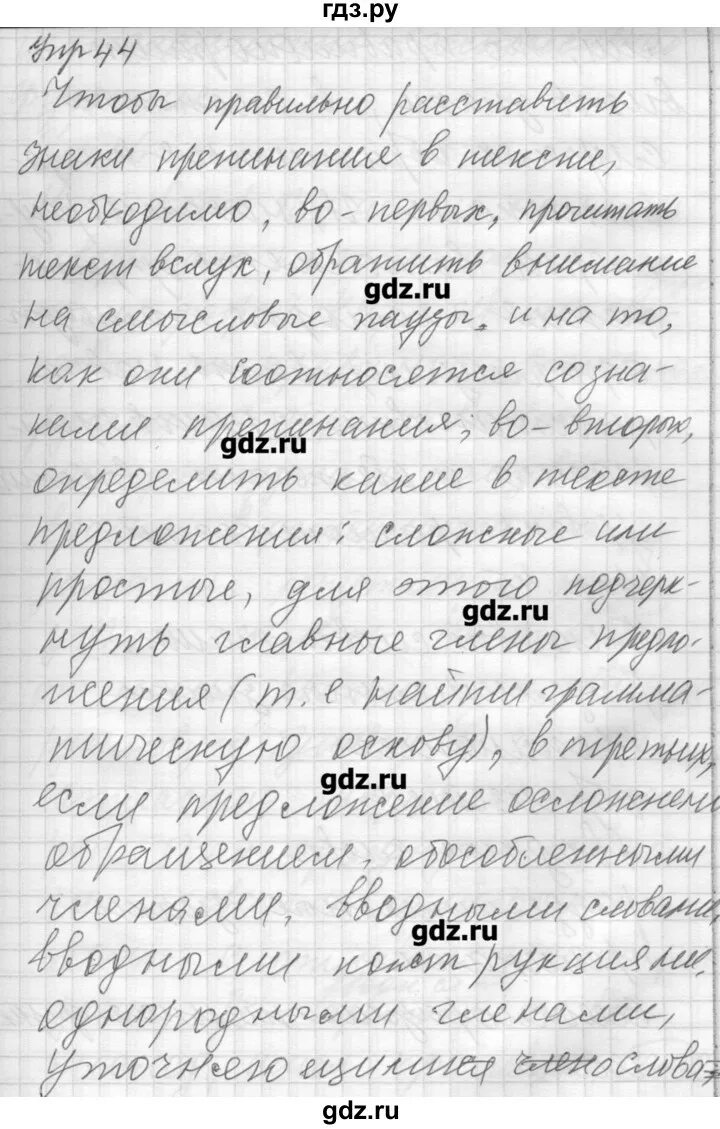 гдз.ру
Упр 44
Чтобы правильно расставить
знаки препинания в тексте,
необходимо, во-первых, прочитать
текст вслух, обратить внимание
gdz.ru
на смысловые паузы, и на то,
как они соотносятся со зна-
ками препинания; во-вторых,
gdz.ru
определить какие в тексте
предложения: сложные или
простые, для этого подчерк-
gdz.ru
нуть главные члены предло-
жения (т. е найти грамма-
тическую основу), в третьих,
gdz.ru
если предложение осложнено
обращением, обособленными
членами, вводными словами,
gdz.ru
вводными конструкциями,
однородными членами,
уточняющими слова-
gdz.ru